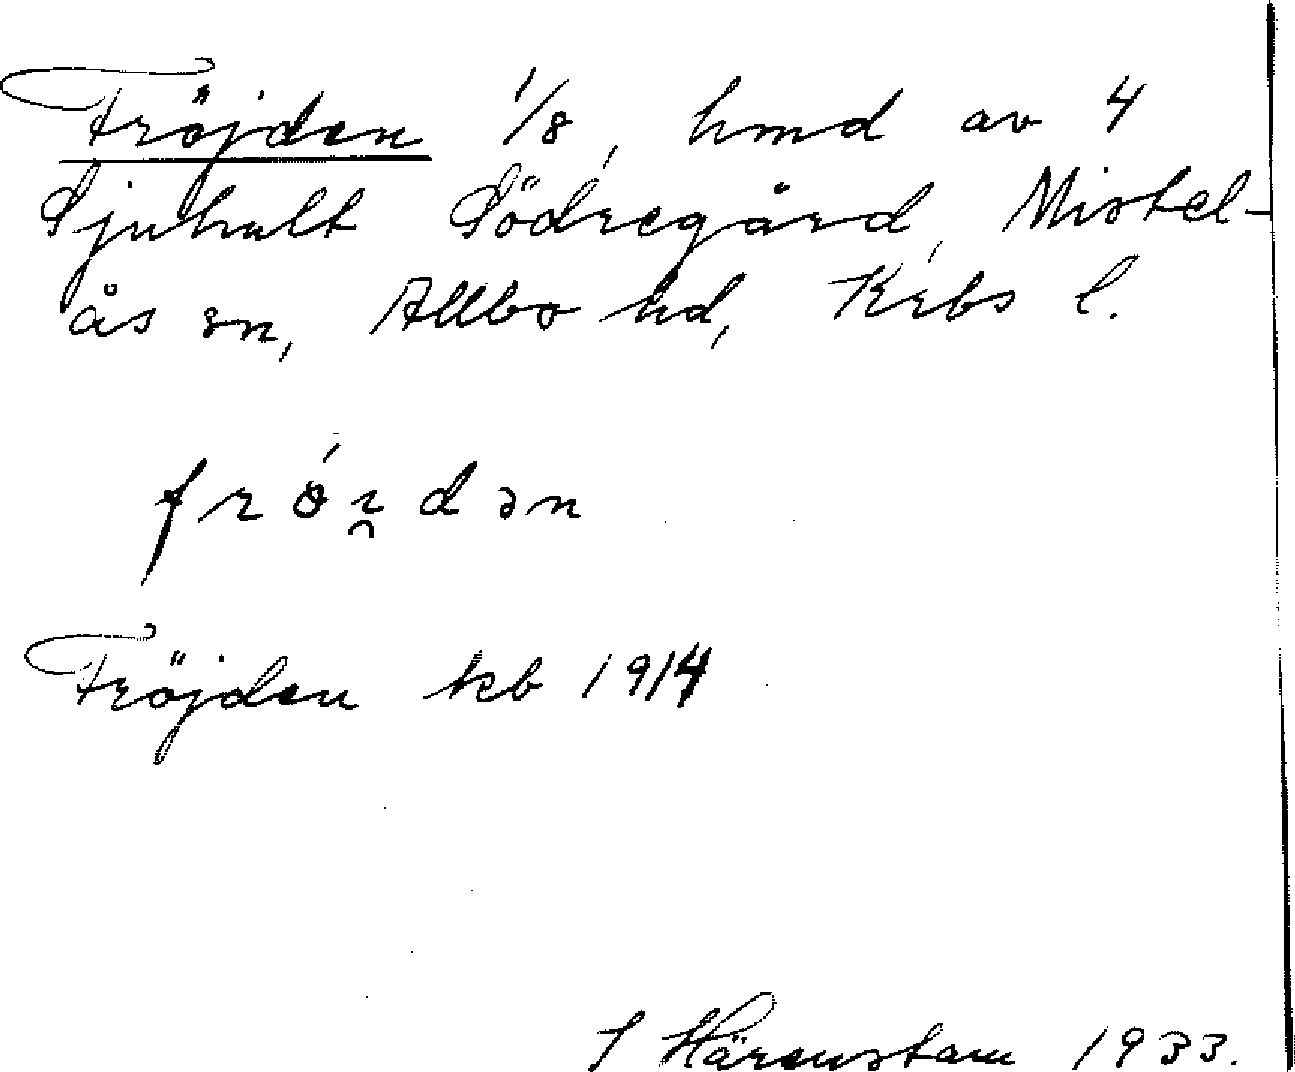 Fröjden 1/8, hmd av 4
Sjuhult Södregård, Mistel-
ås sn, Allbo hd, Krbs l.
frö́i̯dən
Fröjden kb 1914
I Härenstam 1933.